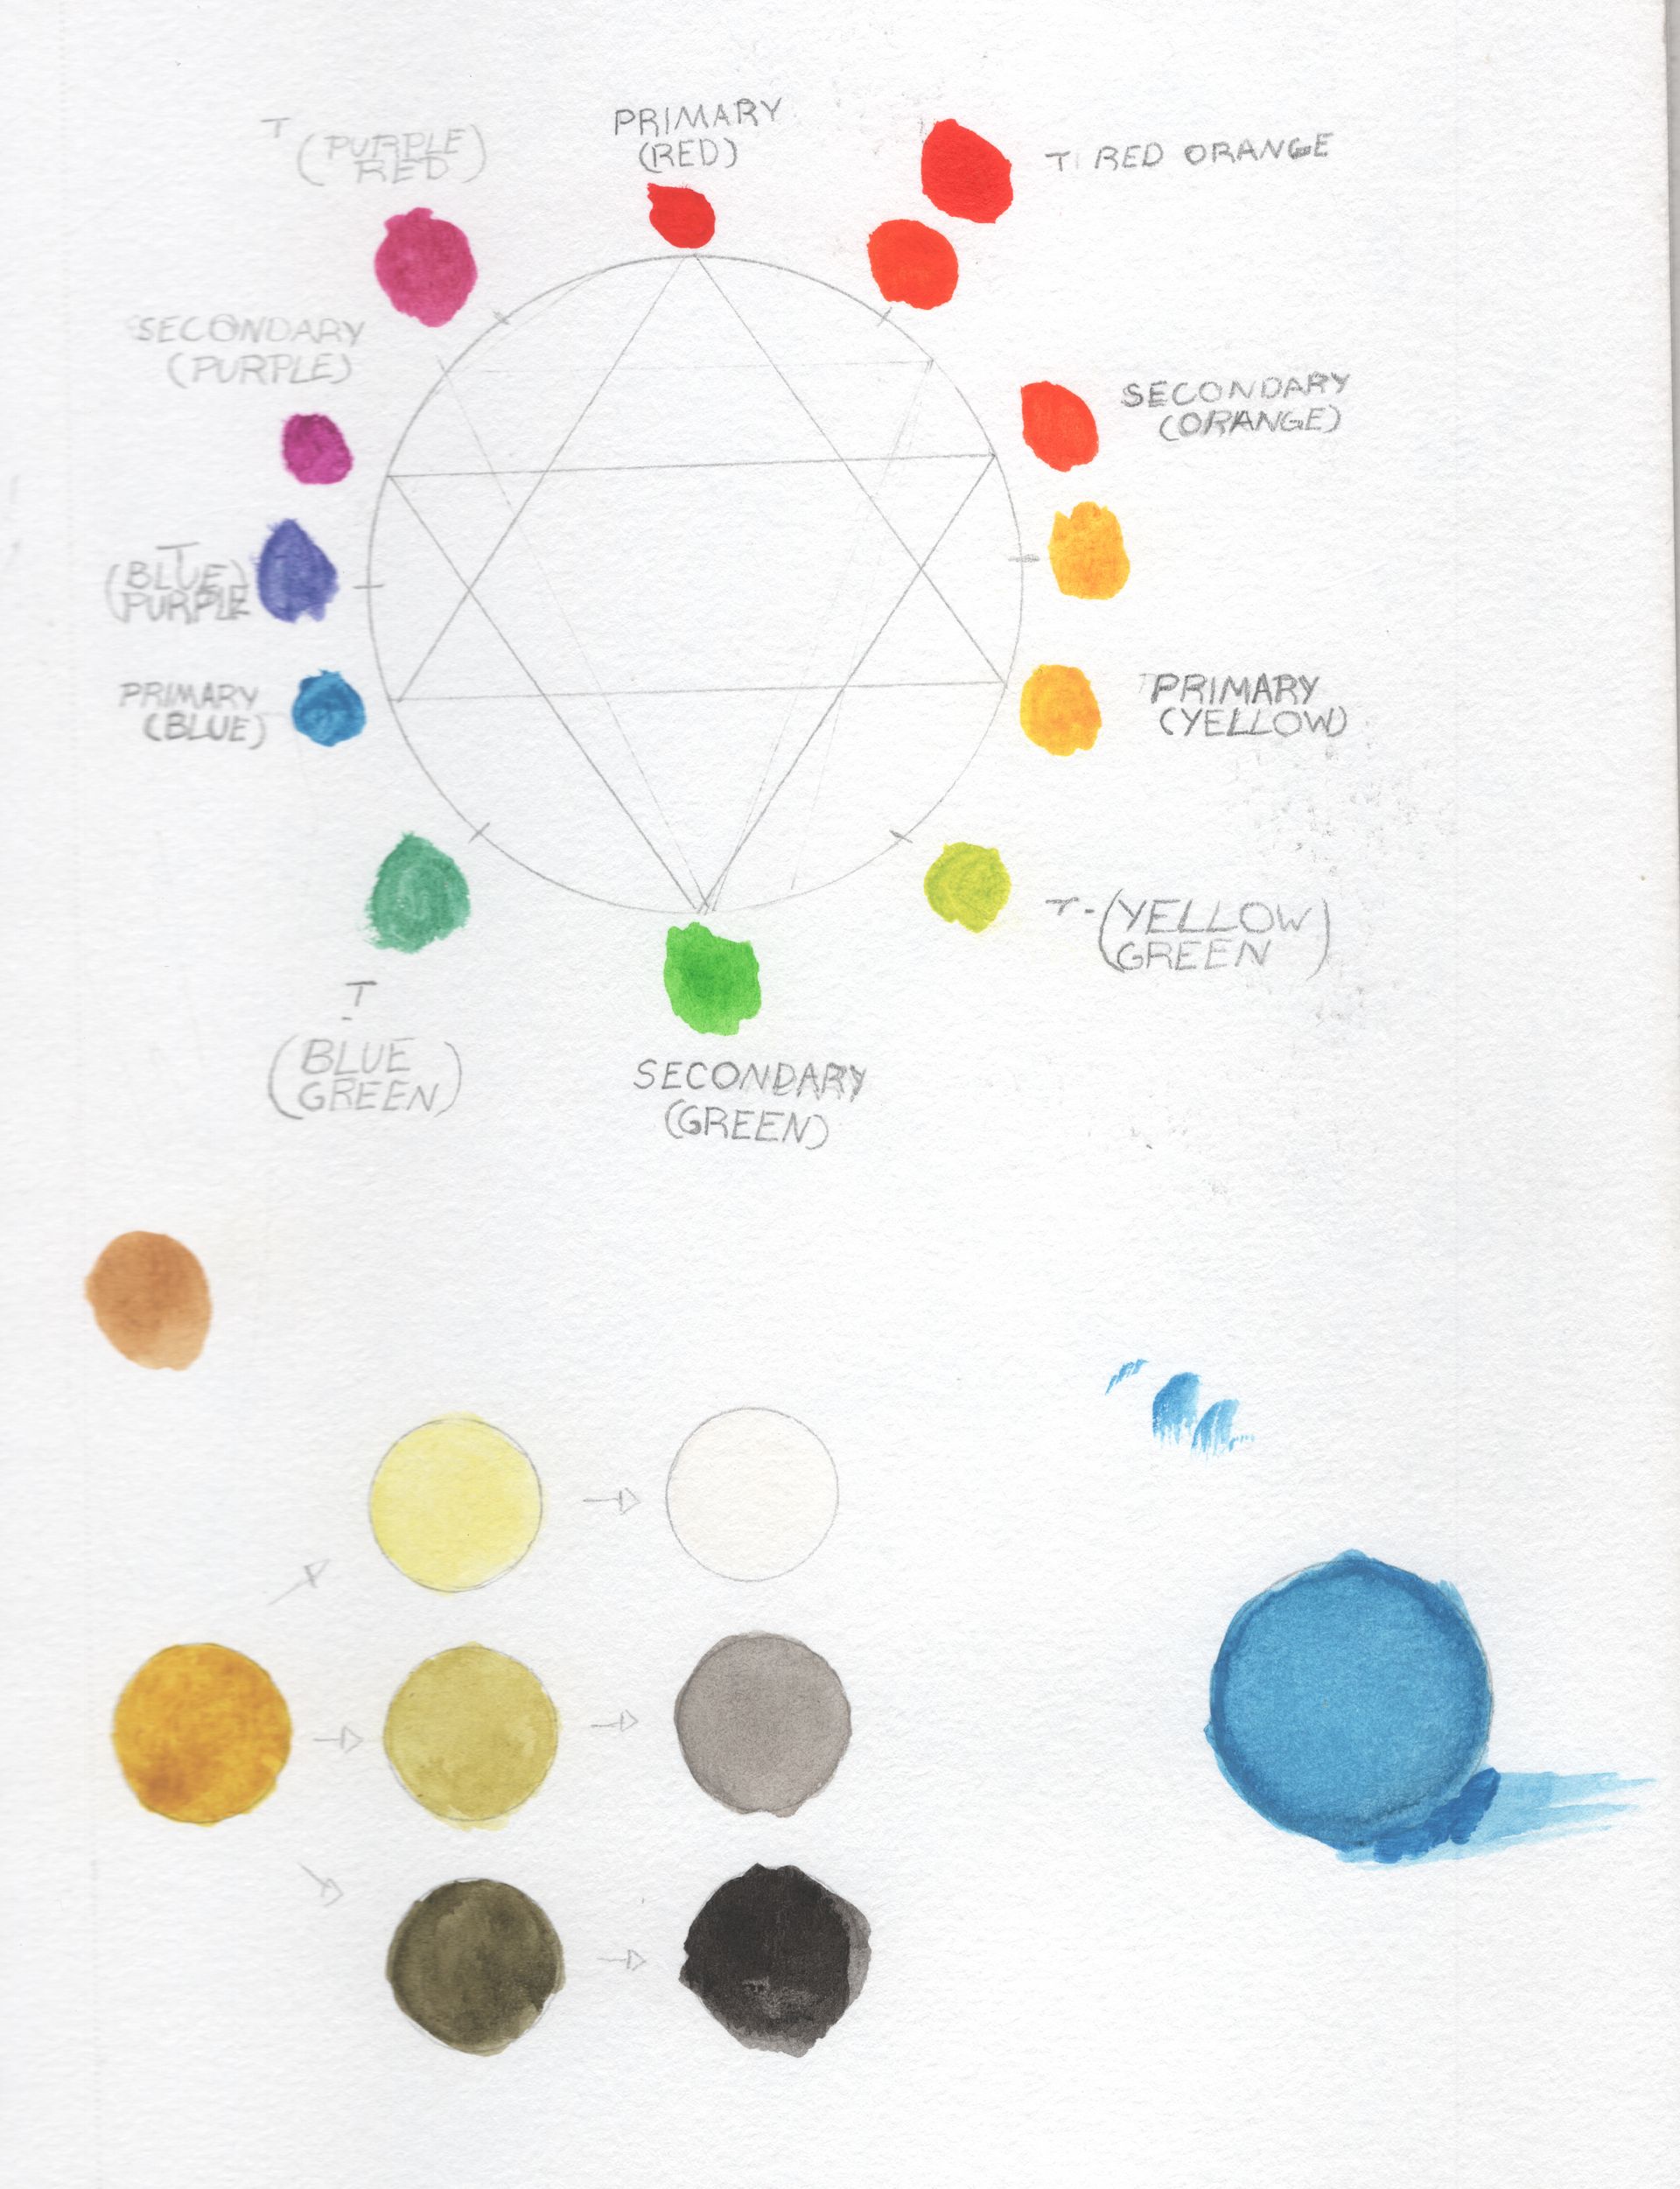 T
(PURPLE
RED)
PRIMARY
(RED)
T RED ORANGE
SECONDARY
(PURPLE)
SECONDARY
(ORANGE)
T
(BLUE)
PURPLE
PRIMARY
(BLUE)
PRIMARY
(YELLOW)
T-(YELLOW)
GREEN
T
-
(BLUE
GREEN)
SECONDARY
(GREEN)